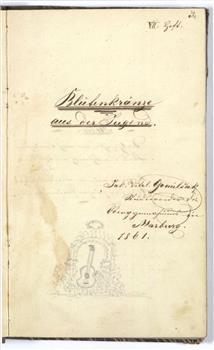 VII. Heft.
Blüthenkränze
aus der Jugend.
Jak. Vital. Gomilšak,
Studierender des
Obergymnasiums zu
Marburg.
1861.